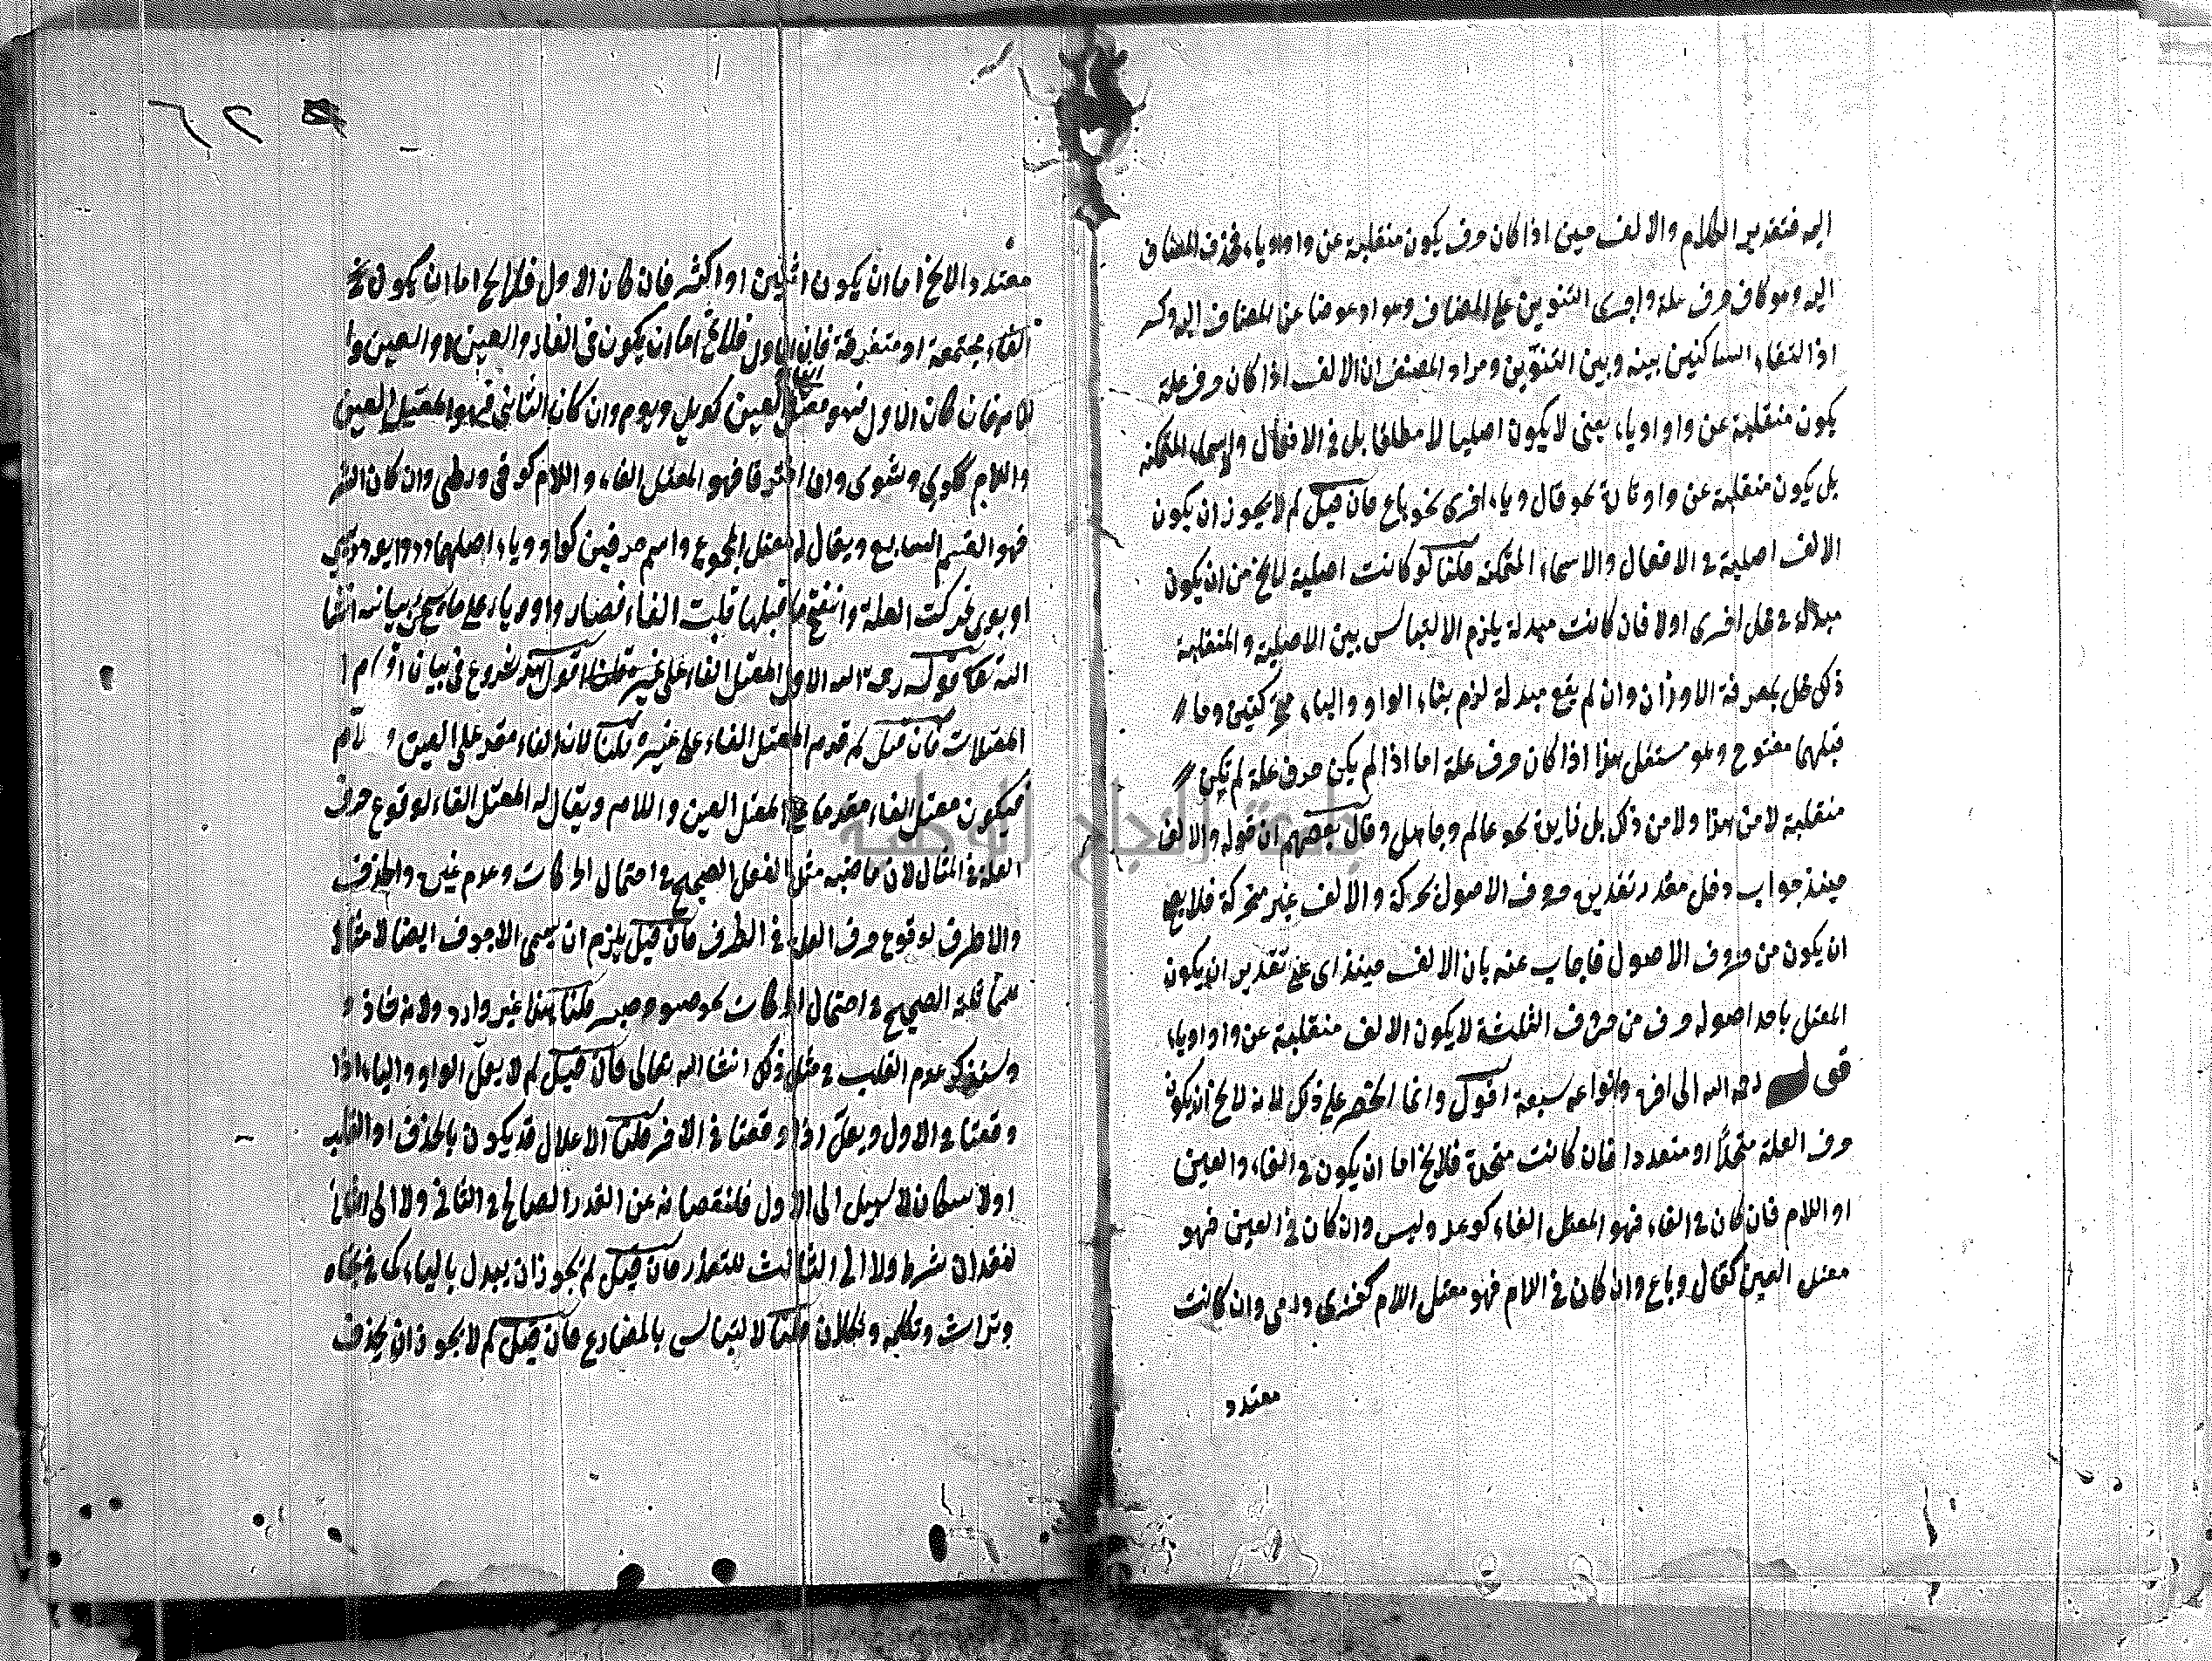 اليه فتقدير الكلام والالف حين اذا كان حرف يكون منقلبة عن واو او ياء فحذف المضاف
اليه وهو كاف حرف علة واجرى التنوين على المضاف وهو اذ عوضا عن المضاف اليه وكسر
اذا التقاء الساكنين بينه وبين التنوين ومراد المصنف ان الالف اذا كان حرف علة
يكون منقلبة عن واو او ياء يعنى لا يكون اصليا لا مطلقا بل فى الافعال والاسماء المتمكنة
بل يكون منقلبة عن واو تارة نحو قال وياء اخرى نحو باع فان قيل لم لا يجوز ان يكون
الالف اصلية فى الافعال والاسماء المتمكنة قلنا لو كانت اصلية لا يخ من ان يكون
مبدلة فى محل اخرى اولا فان كانت مبدلة يلزم الالتباس بين الاصلية والمنقلبة
ذلك مخل بمعرفة الاوزان وان لم يقع مبدلة لزم بناء الواو والياء وما
قبلهما مفتوح وهو مستثقل هذا اذا كان حرف علة اما اذا لم يكن حرف علة لم تكن
منقلبة لا من هذا ولا من ذلك بل زايدة نحو عالم وجاهل وقال بعضهم ان قوله والالف
حينئذ جواب دخل مقدر تقديره حروف الاصول متحركة والالف غير متحركة فلا يصح
ان يكون من حروف الاصول فاجاب عنه بان الالف حينئذ اى على تقدير ان يكون
المعتل باحد اصوله حرف من حروف الثلثة لا يكون الالف منقلبة عن واو او ياء
قوله رحمه الله الى اخره وانواعه سبعة اقول وانما انحصر على ذلك لانه لا يخ ان يكون
حرف العلة متحدا او متعددا فان كانت متحدة فلا يخ اما ان يكون فى الفاء والعين
او اللام فان كان فى الفاء فهو المعتل الفاء كوعد ويسر وان كان فى العين فهو
معتل العين كقال وباع وان كان فى الام فهو معتل اللام كغزى ورمى وان كانت
معتدد
معتدد والا يخ اما ان يكون اثنين او اكثر فان كان الاول فلا يخ اما ان يكون
الفاء مجتمعة او متفرقة فان الاول فلا يخ اما ان يكون فى الفاء والعين او العين وا
لام فان كان الاول فهو معتل العين كويل ويوم وان كان الثانى فهو المعتل العين
واللام كلوى وشوى وان افترقا فهو المعتل الفاء واللام كوقى ووطى وان كان
فهو القسم السابع ويقال له معتل المجموع واسم حرفين كواو وياء اصلهما
او بوى تحركت العلة وانفتح ما قبلها قلبت الفاء فصار واو وياء على ما سيجئ بيانه انشا
الله تعا قوله رحمه الله الاول المعتل الفاء على غيره اقول شروع فى بيان اقسام
المعتلات فان قيل لم قدم المعتل الفاء على غيره قلنا لان الفاء مقدم على العين و اللام
فيكون معتل الفاء مقدما على المعتل العين واللام ويقال له المعتل الفاء لوقوع حرف
العلة فى المثال لان ماضيه مثل الفعل الصحيح فى احتمال الحركات وعدم غيره والحذف
والاطرف لوقوع حرف العلة فى الطرف فان قيل يلزم ان يسمى الاجوف ايضا لامثال
الصحيح فى احتمال الحركات نحو قلنا هذا غير وارد ولانه شاذ و
وسنذكر عدم القلب فى مثل ذلك انشا الله تعالى فان قيل لم لا يعل الواو والياء اذا
وقعتا فى الاول ويعل اذا وقعتا فى الاخر قلنا الاعلال قد يكون بالحذف او القلب
اولا سكان لا سبيل الى الاول فلنقصانه عن القدر الصالح فى الثانى ولا الى الثانى
لفقدان شرط ولا الى الثالث للتعذر فان قيل لم يجوز ان يبدل بالياء كما فى تجاه
وتراث وتكلمه وتكلان قلنا لالتباس بالمضارع فان قيل لم لا يجوز ان يحذف